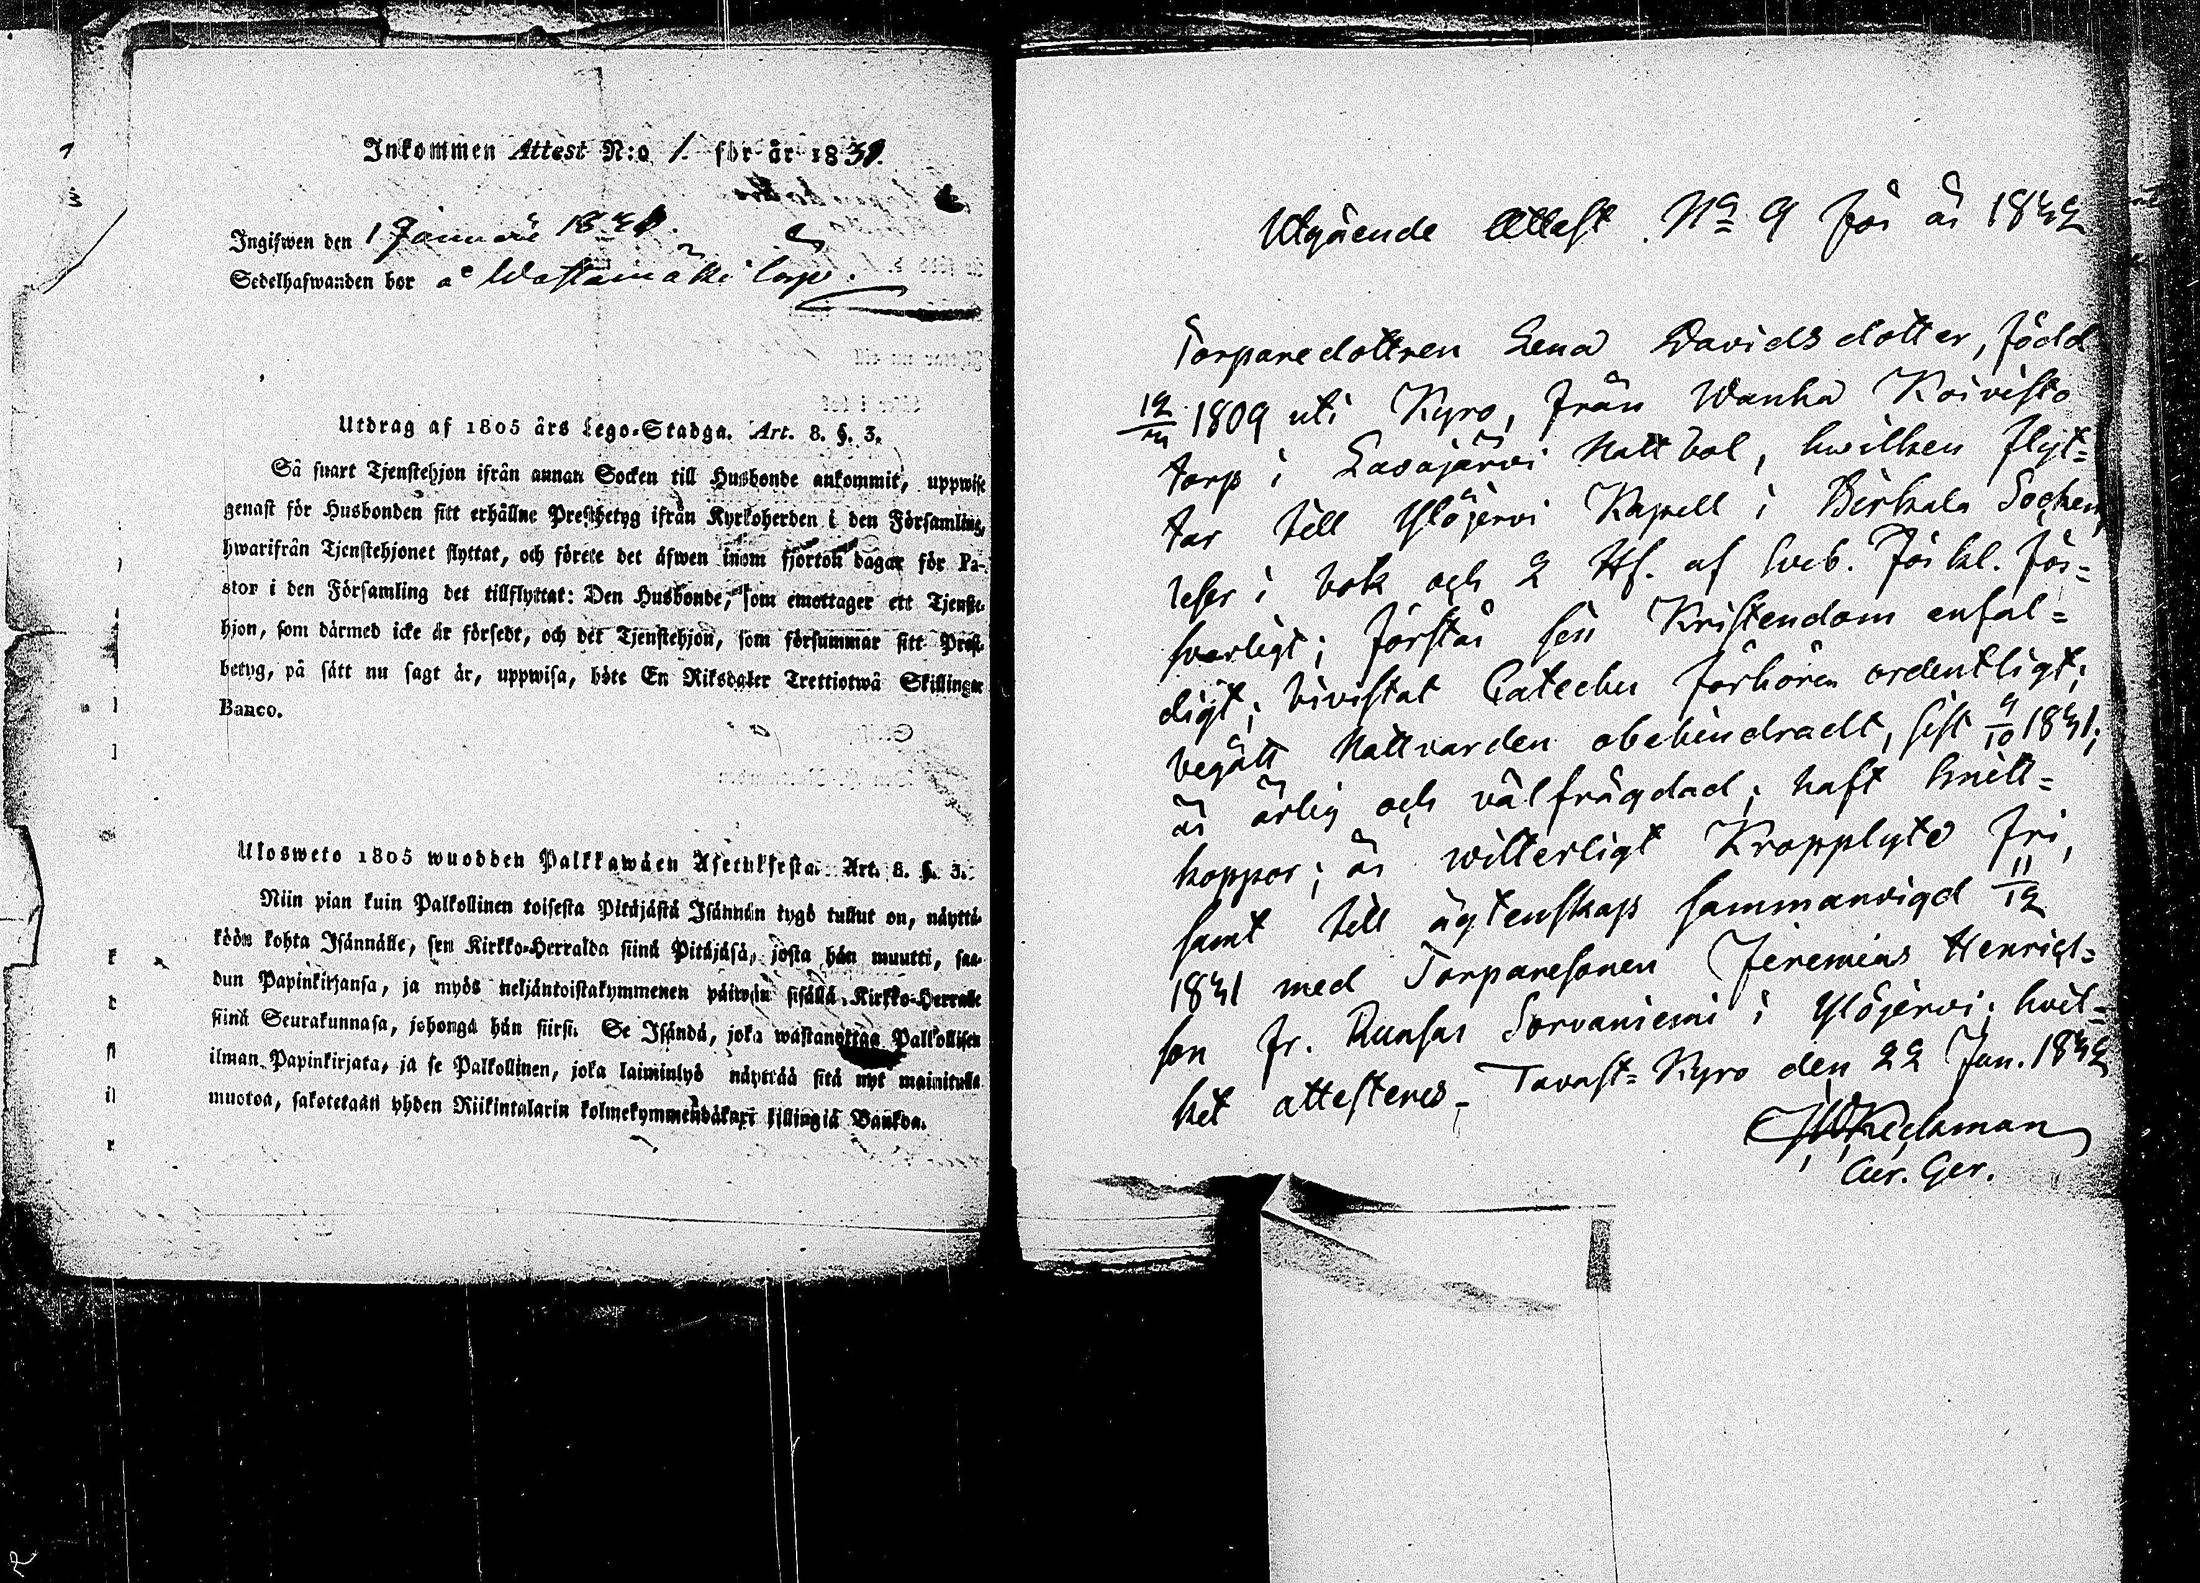 Inkommen Attest N:o 1. för år 1831.
Ingifwen den 1 Januarii 1831.
Sedelhafwanden bor å Wastamäki torp.
Utdrag af 1805 års Lego-Stadga. Art. 8. §. 3.
Så snart Tjenstehjon ifrån annan Socken till Husbonde ankommit, uppwise
genast för Husbonden sitt erhållne Prestbetyg ifrån Kyrkoherden i den Församling,
hwarifrån Tjenstehjonet flyttat, och förete det äfwen inom fjorton dagar för Pa-
stor i den Församling det tillflyttat: Den Husbonde, som emottager ett Tjenste-
hjon, som därmed icke är försedt, och det Tjenstehjon, som försummar sitt Prest-
betyg, på sätt nu sagt är, uppwisa, böte En Riksdaler Trettiotwå Skillingar
Banco.
Ulosweto 1805 wuodden Palkkawäen Asetuksesta. Art. 8. §. 3.
Niin pian kuin Palkollinen toisesta Pitäjästä Isännän tygö tullut on, näyttä-
köön kohta Isännälle, sen Kirkko-Herralda siinä Pitäjäsä, josta hän muutti, saa-
dun Papinkirjansa, ja myös neljäntoistakymmenen päiwän sisällä Kirkko-Herralle
siinä Seurakunnasa, johonga hän siirsi. Se Isändä, joka wastanottaa Palkollisen
ilman Papinkirjata, ja se Palkollinen, joka laiminlyö näyttää sitä nyt mainitulla
muotoa, sakotetaan yhden Riikintalarin kolmekymmendäkaxi killingiä Bankoa.
Utgående Attest Nº 9 för år 1832
Torparedottren Lena Davidsdotter, född
12 1809 uti Kyro, från Wanha Koivisto
torp i Lavajärvi Nattbol, hwilken flyt=
tar till Ylöjervi Kapell i Birkala Socken,
läser i bok och 2 Hf. af Sveb. Förkl. för=
svarligt; förstår sin Kristendom enfal=
digt; bivistat Catechu förhören ordentligt;
begått Nattvarden obehindradt, sist 9/10 1831;
är ärlig och välfrägdad; haft Smitt=
koppor; är witterligt Kropplyte fri,
samt till ägtenskap sammanvigd 11/12
1831 med Torparesonen Jeremias Henrics=
son fr. Runsas Sorvaniemi i Ylöjervi; hvil=
ket attesteres. Tavast=Kyro den 22 Jan. 1832
Cur. Ger.